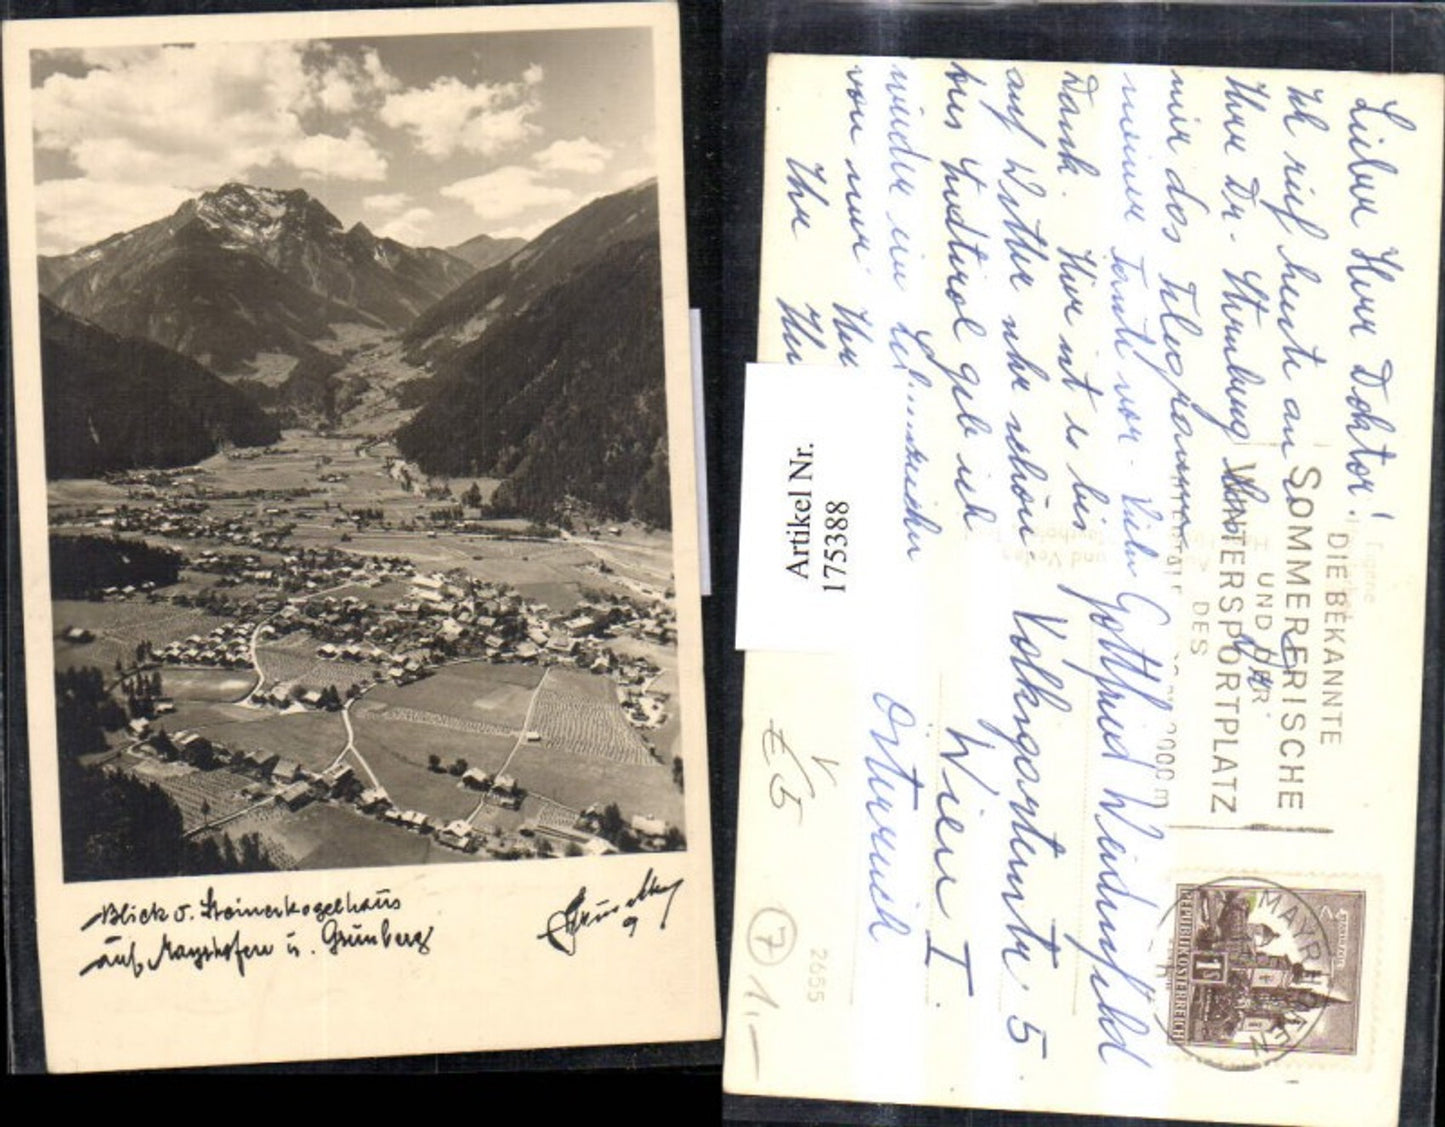 Blick v. Steinerkogelhaus
auf Mayrhofen u. Grünberg
9
Lieber Herr Doktor!
Ich rief heute an
Ihre Dr.
mir das Telegramm
meiner Tante vor. Viele
Dank. Hier ist es bis
auf Wetter sehr schön
bis Südtirol gebe ich
wieder ein Lebenszeichen
von mir. Ihr
Ihr Ihr
Gottfried
Volksgartenstr 5.
Wien I.
Österreich
DIE BEKANNTE
SOMMERFRISCHE
UND DER
WINTERSPORTPLATZ
DES
2000 m
MAYRHOFEN
REPUBLIK ÖSTERREICH
1S
Artikel Nr.
175388
€ 5
7
1,—
2655